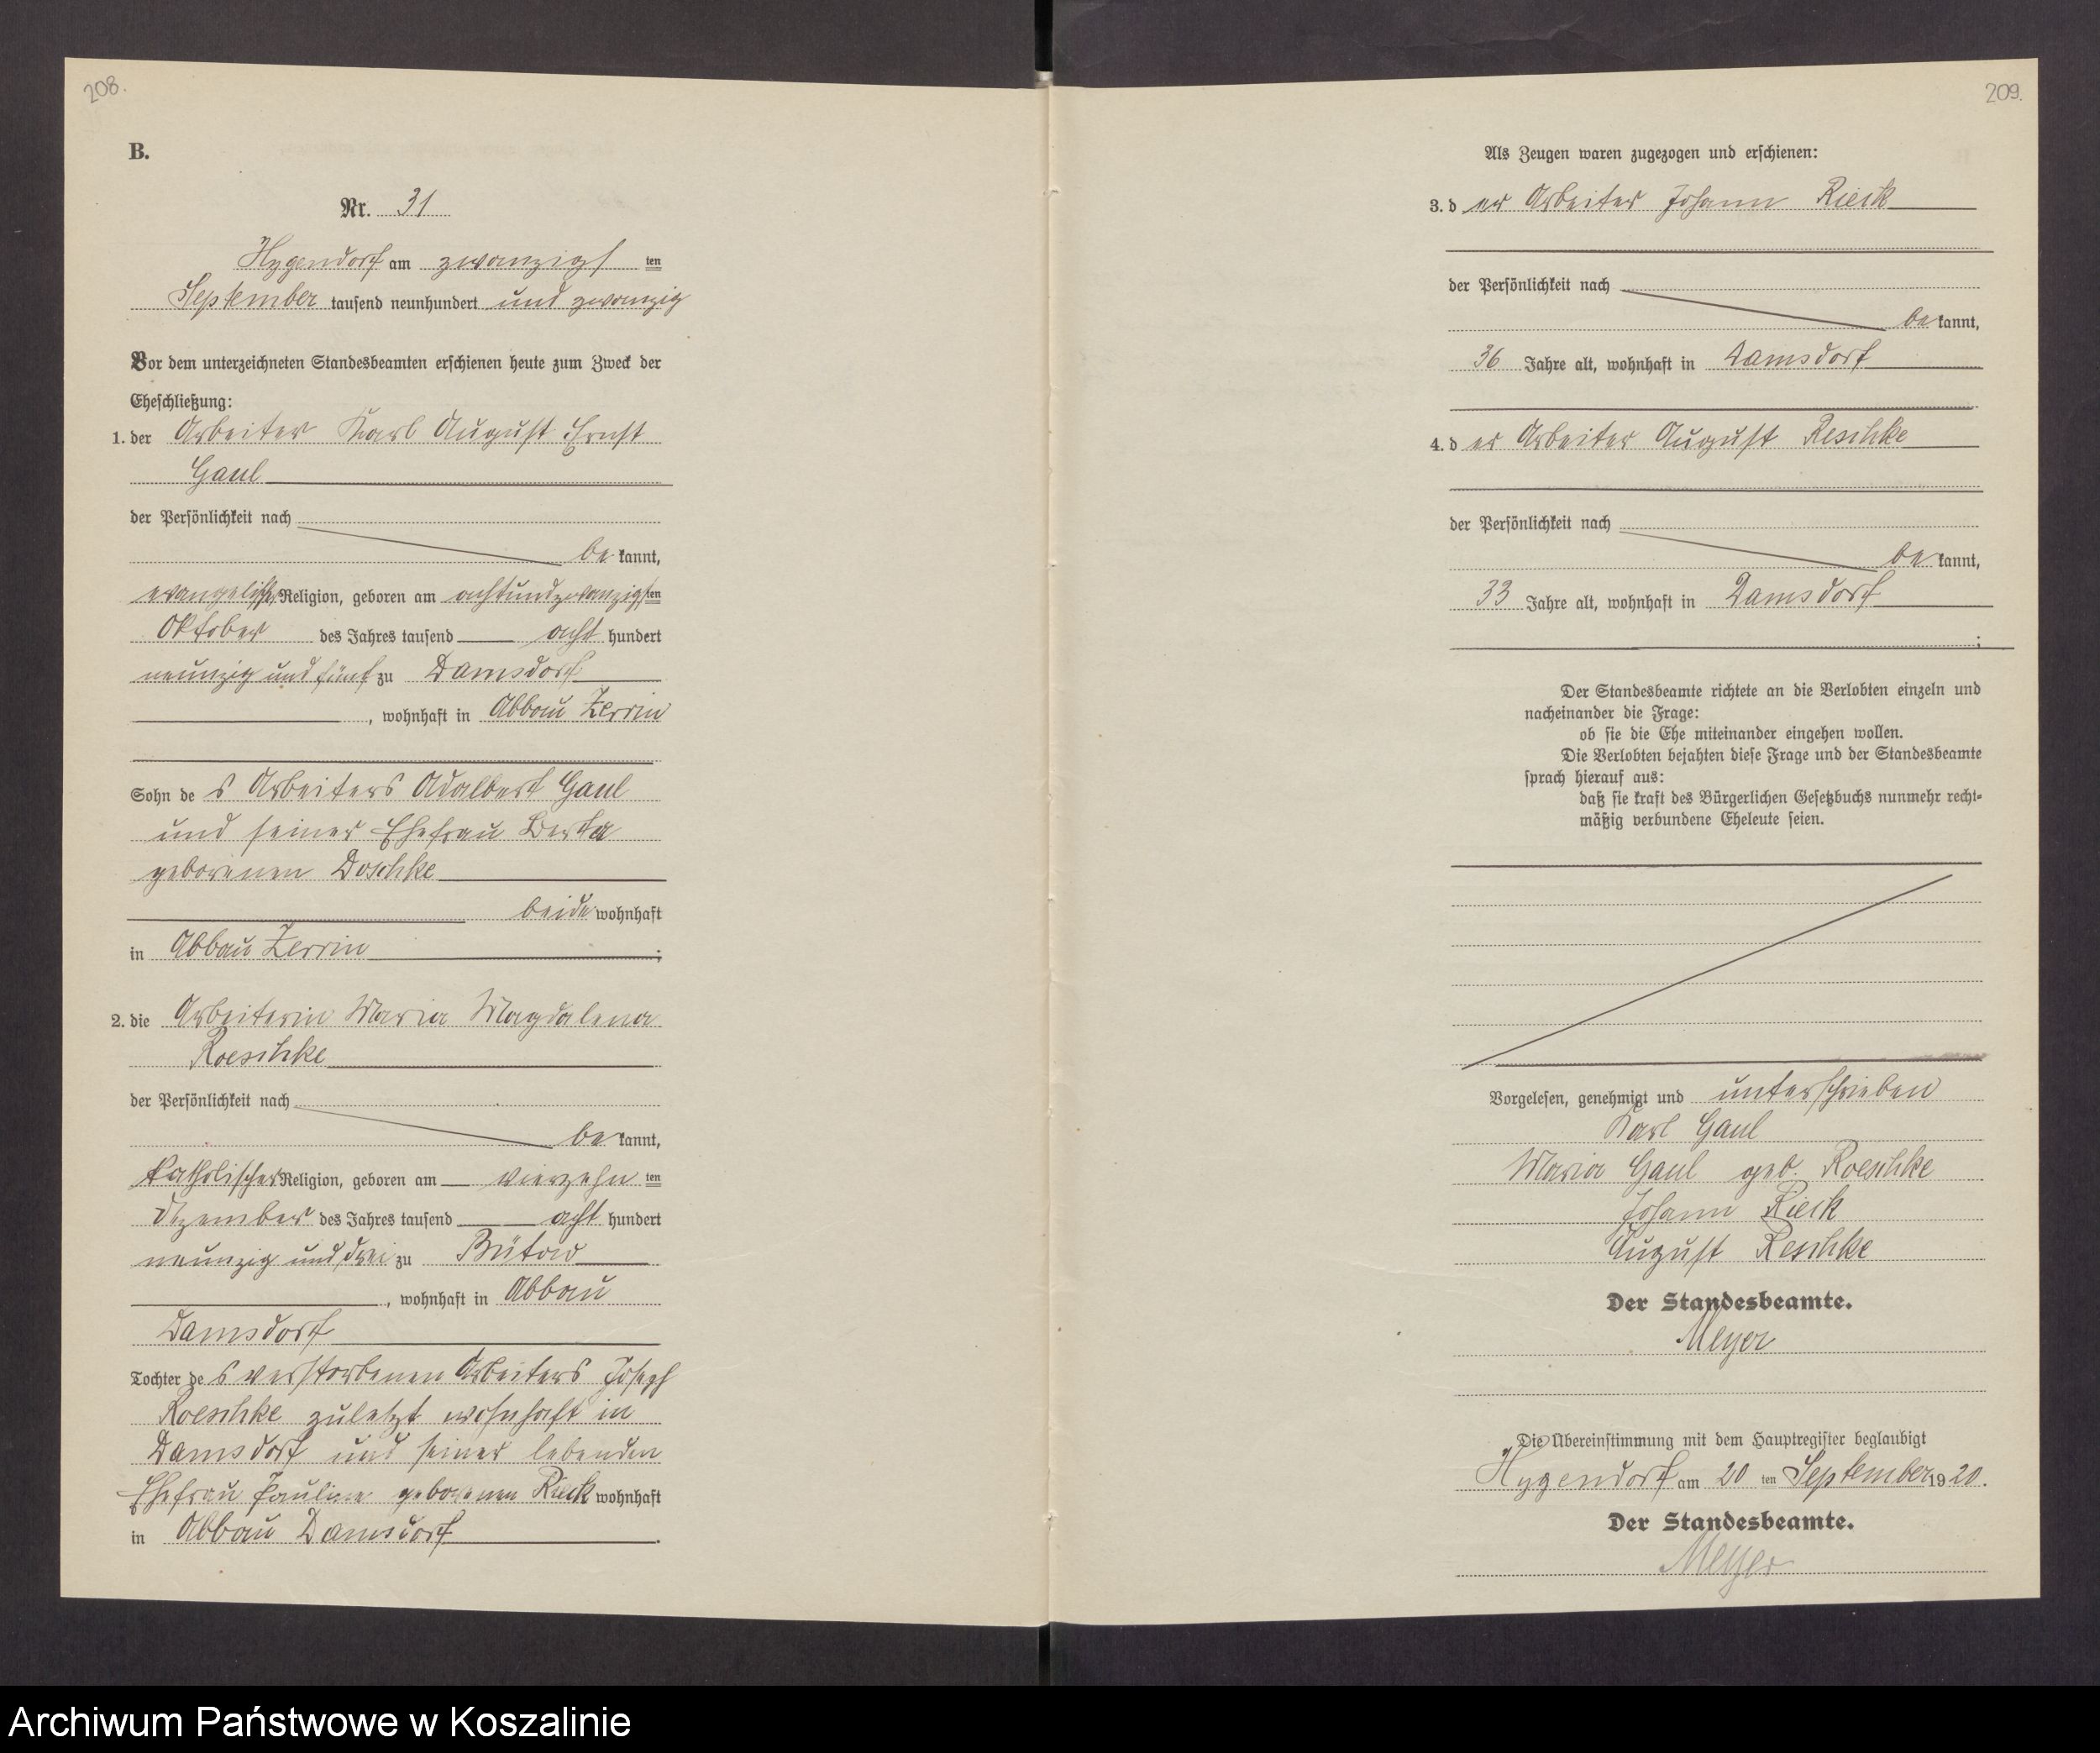 208.
B.
Nr. 31
Hygendorf am zwanzigsten
September tausend neunhundert und zwanzig
Vor dem unterzeichneten Standesbeamten erschienen heute zum Zweck der
Eheschließung:
1. der Arbeiter Karl August Ernst
Gaul
der Persönlichkeit nach
bekannt,
evangelischer Religion, geboren am achtundzwanzigsten
Oktober des Jahres tausend acht hundert
neunzig und fünf zu Damsdorf
, wohnhaft in Abbau Zerrin
Sohn des Arbeiters Adalbert Gaul
und seiner Ehefrau Berta
geborenen Doschke
beide wohnhaft
in Abbau Zerrin ;
2. die Arbeiterin Maria Magdalena
Roeschke
der Persönlichkeit nach
bekannt,
katholischer Religion, geboren am vierzehnten
Dezember des Jahres tausend acht hundert
neunzig und drei zu Bütow
, wohnhaft in Abbau
Damsdorf
Tochter des verstorbenen Arbeiters Joseph
Roeschke zuletzt wohnhaft in
Damsdorf und seiner lebenden
Ehefrau Pauline geborenen Rieck wohnhaft
in Abbau Damsdorf .
209.
Als Zeugen waren zugezogen und erschienen:
3. der Arbeiter Johann Rieck
der Persönlichkeit nach
bekannt,
36 Jahre alt, wohnhaft in Damsdorf
4. der Arbeiter August Reschke
der Persönlichkeit nach
bekannt,
33 Jahre alt, wohnhaft in Damsdorf
;
Der Standesbeamte richtete an die Verlobten einzeln und
nacheinander die Frage:
ob sie die Ehe miteinander eingehen wollen.
Die Verlobten bejahten diese Frage und der Standesbeamte
sprach hierauf aus:
daß sie kraft des Bürgerlichen Gesetzbuchs nunmehr recht-
mäßig verbundene Eheleute seien.
Vorgelesen, genehmigt und unterschrieben
Karl Gaul
Maria Gaul geb. Roeschke
Johann Rieck
August Reschke
Der Standesbeamte.
Meyer
Die Übereinstimmung mit dem Hauptregister beglaubigt
Hygendorf am 20 ten September 1920.
Der Standesbeamte.
Meyer
Archiwum Państwowe w Koszalinie